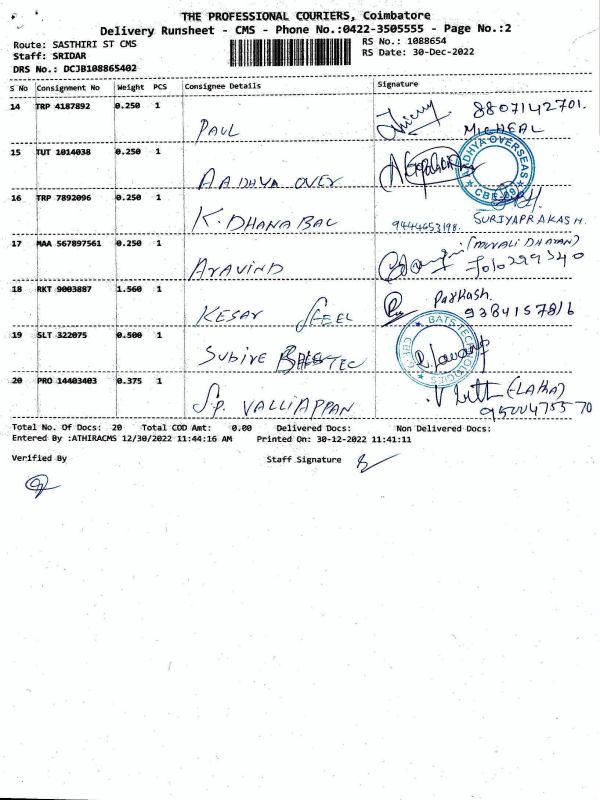 THE PROFESSIONAL COURIERS, Coimbatore
Delivery Runsheet - CMS - Phone No.:0422-3505555 - Page No.:2
Route: SASTHIRI ST CMS
RS No.: 1088654
Staff: SRIDAR
RS Date: 30-Dec-2022
DRS No.: DCJB108865402
S No Consignment No Weight PCS Consignee Details Signature
14 TRP 4187892 0.250 1
8807142701.
PAUL
MICHEAL
15 TUT 1014038 0.250 1
AADHYA OVER
AADHYA OVERSEAS
CBE-09
16 TRP 7892096 0.250 1
K. DHANABAL
9444653198.
SURIYAPRAKASH.
17 MAA 567897561 0.250 1
(MURALI DHARAN)
ARAVIND
7010299340
18 RKT 9003887 1.560 1
Parkash.
KESAR STEEL
9384157816
19 SLT 322075 0.500 1
BATS TECHNOLOGIES
SUBIRE TEC
20 PRO 14403403 0.375 1
S.P. VALLIAPPAN
9500475570
Total No. Of Docs: 20 Total COD Amt: 0.00 Delivered Docs: Non Delivered Docs:
Entered By :ATHIRACMS 12/30/2022 11:44:16 AM Printed On: 30-12-2022 11:41:11
Verified By
Staff Signature